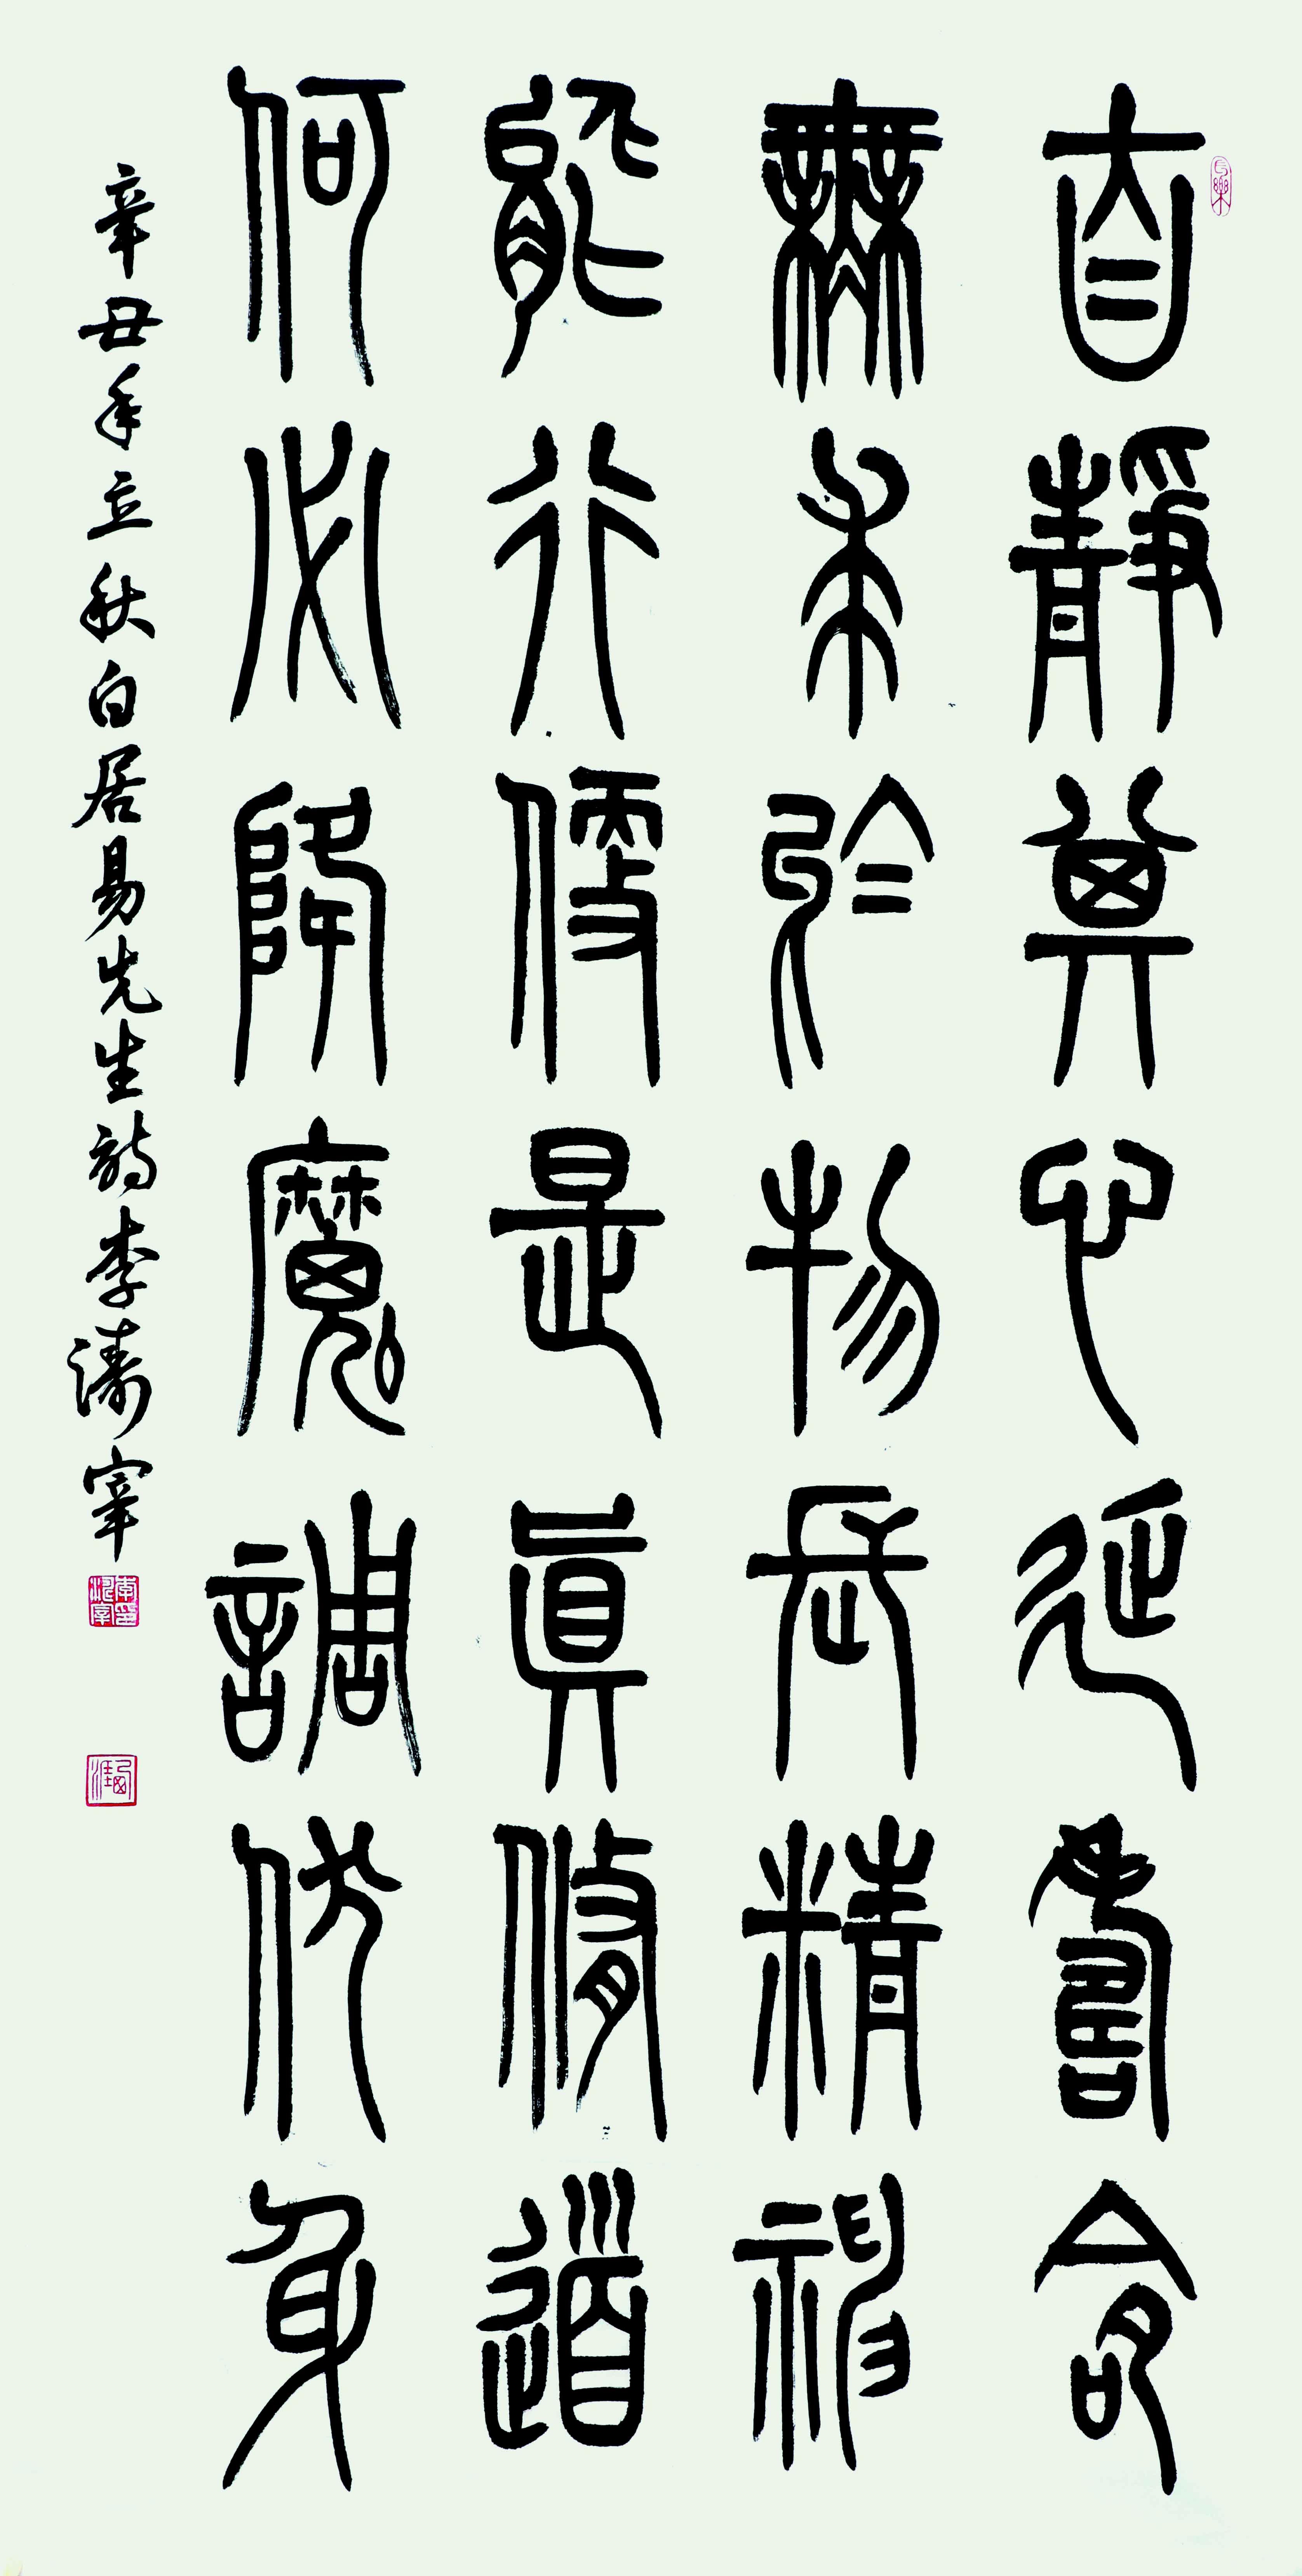 自靜其心延壽命
無求於物長精神
能行便是真修道
何必降魔調伏身
辛丑年立秋白居易先生詩李濤宰